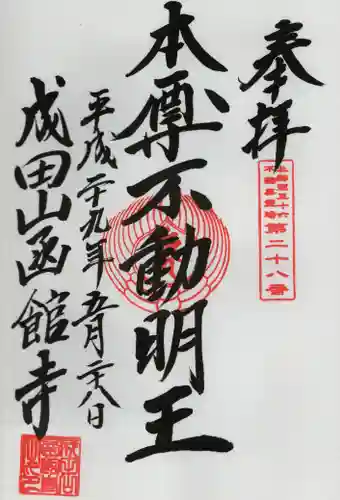 奉拝
第二十八番
本尊不動明王
平成二十九年五月二十八日
成田山函館寺